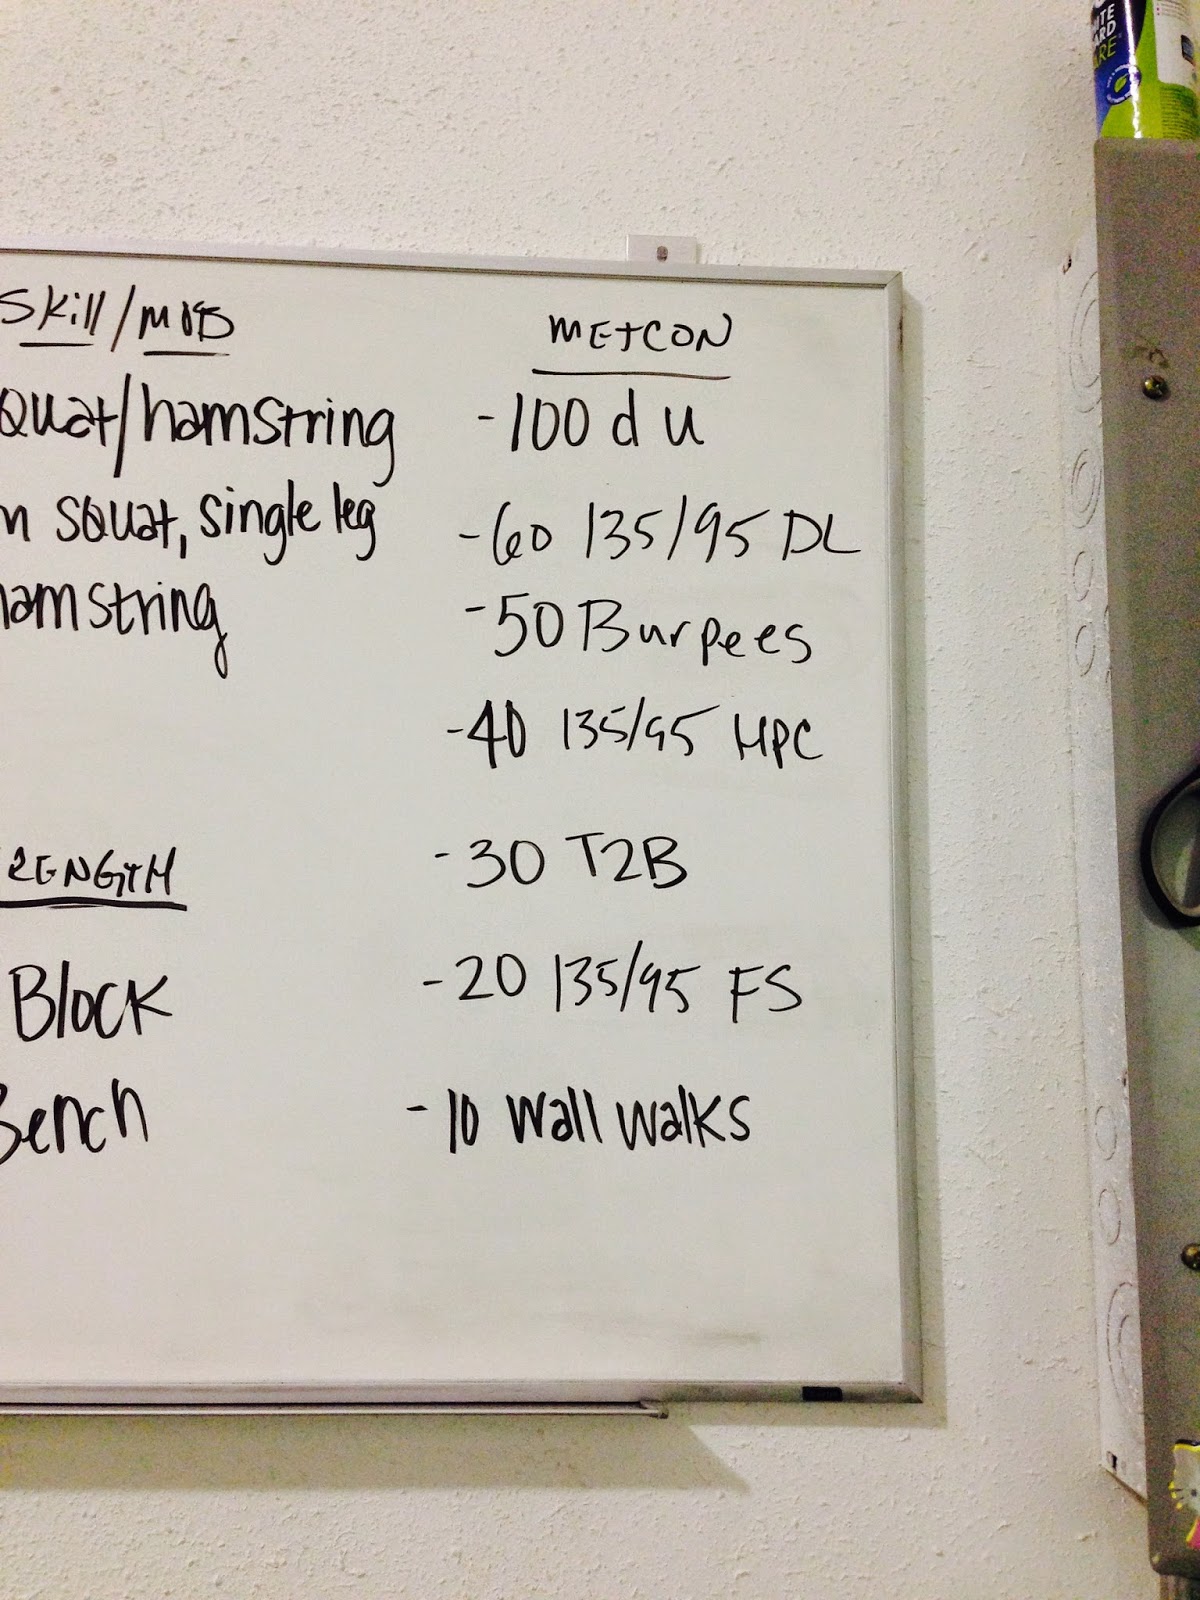 Skill/MOB
quat/hamstring
m squat, single leg
hamstring
RENGTH
Block
Bench
METCON
-100 du
-60 135/95 DL
-50 Burpees
-40 135/95 HPC
-30 T2B
-20 135/95 FS
-10 wall walks